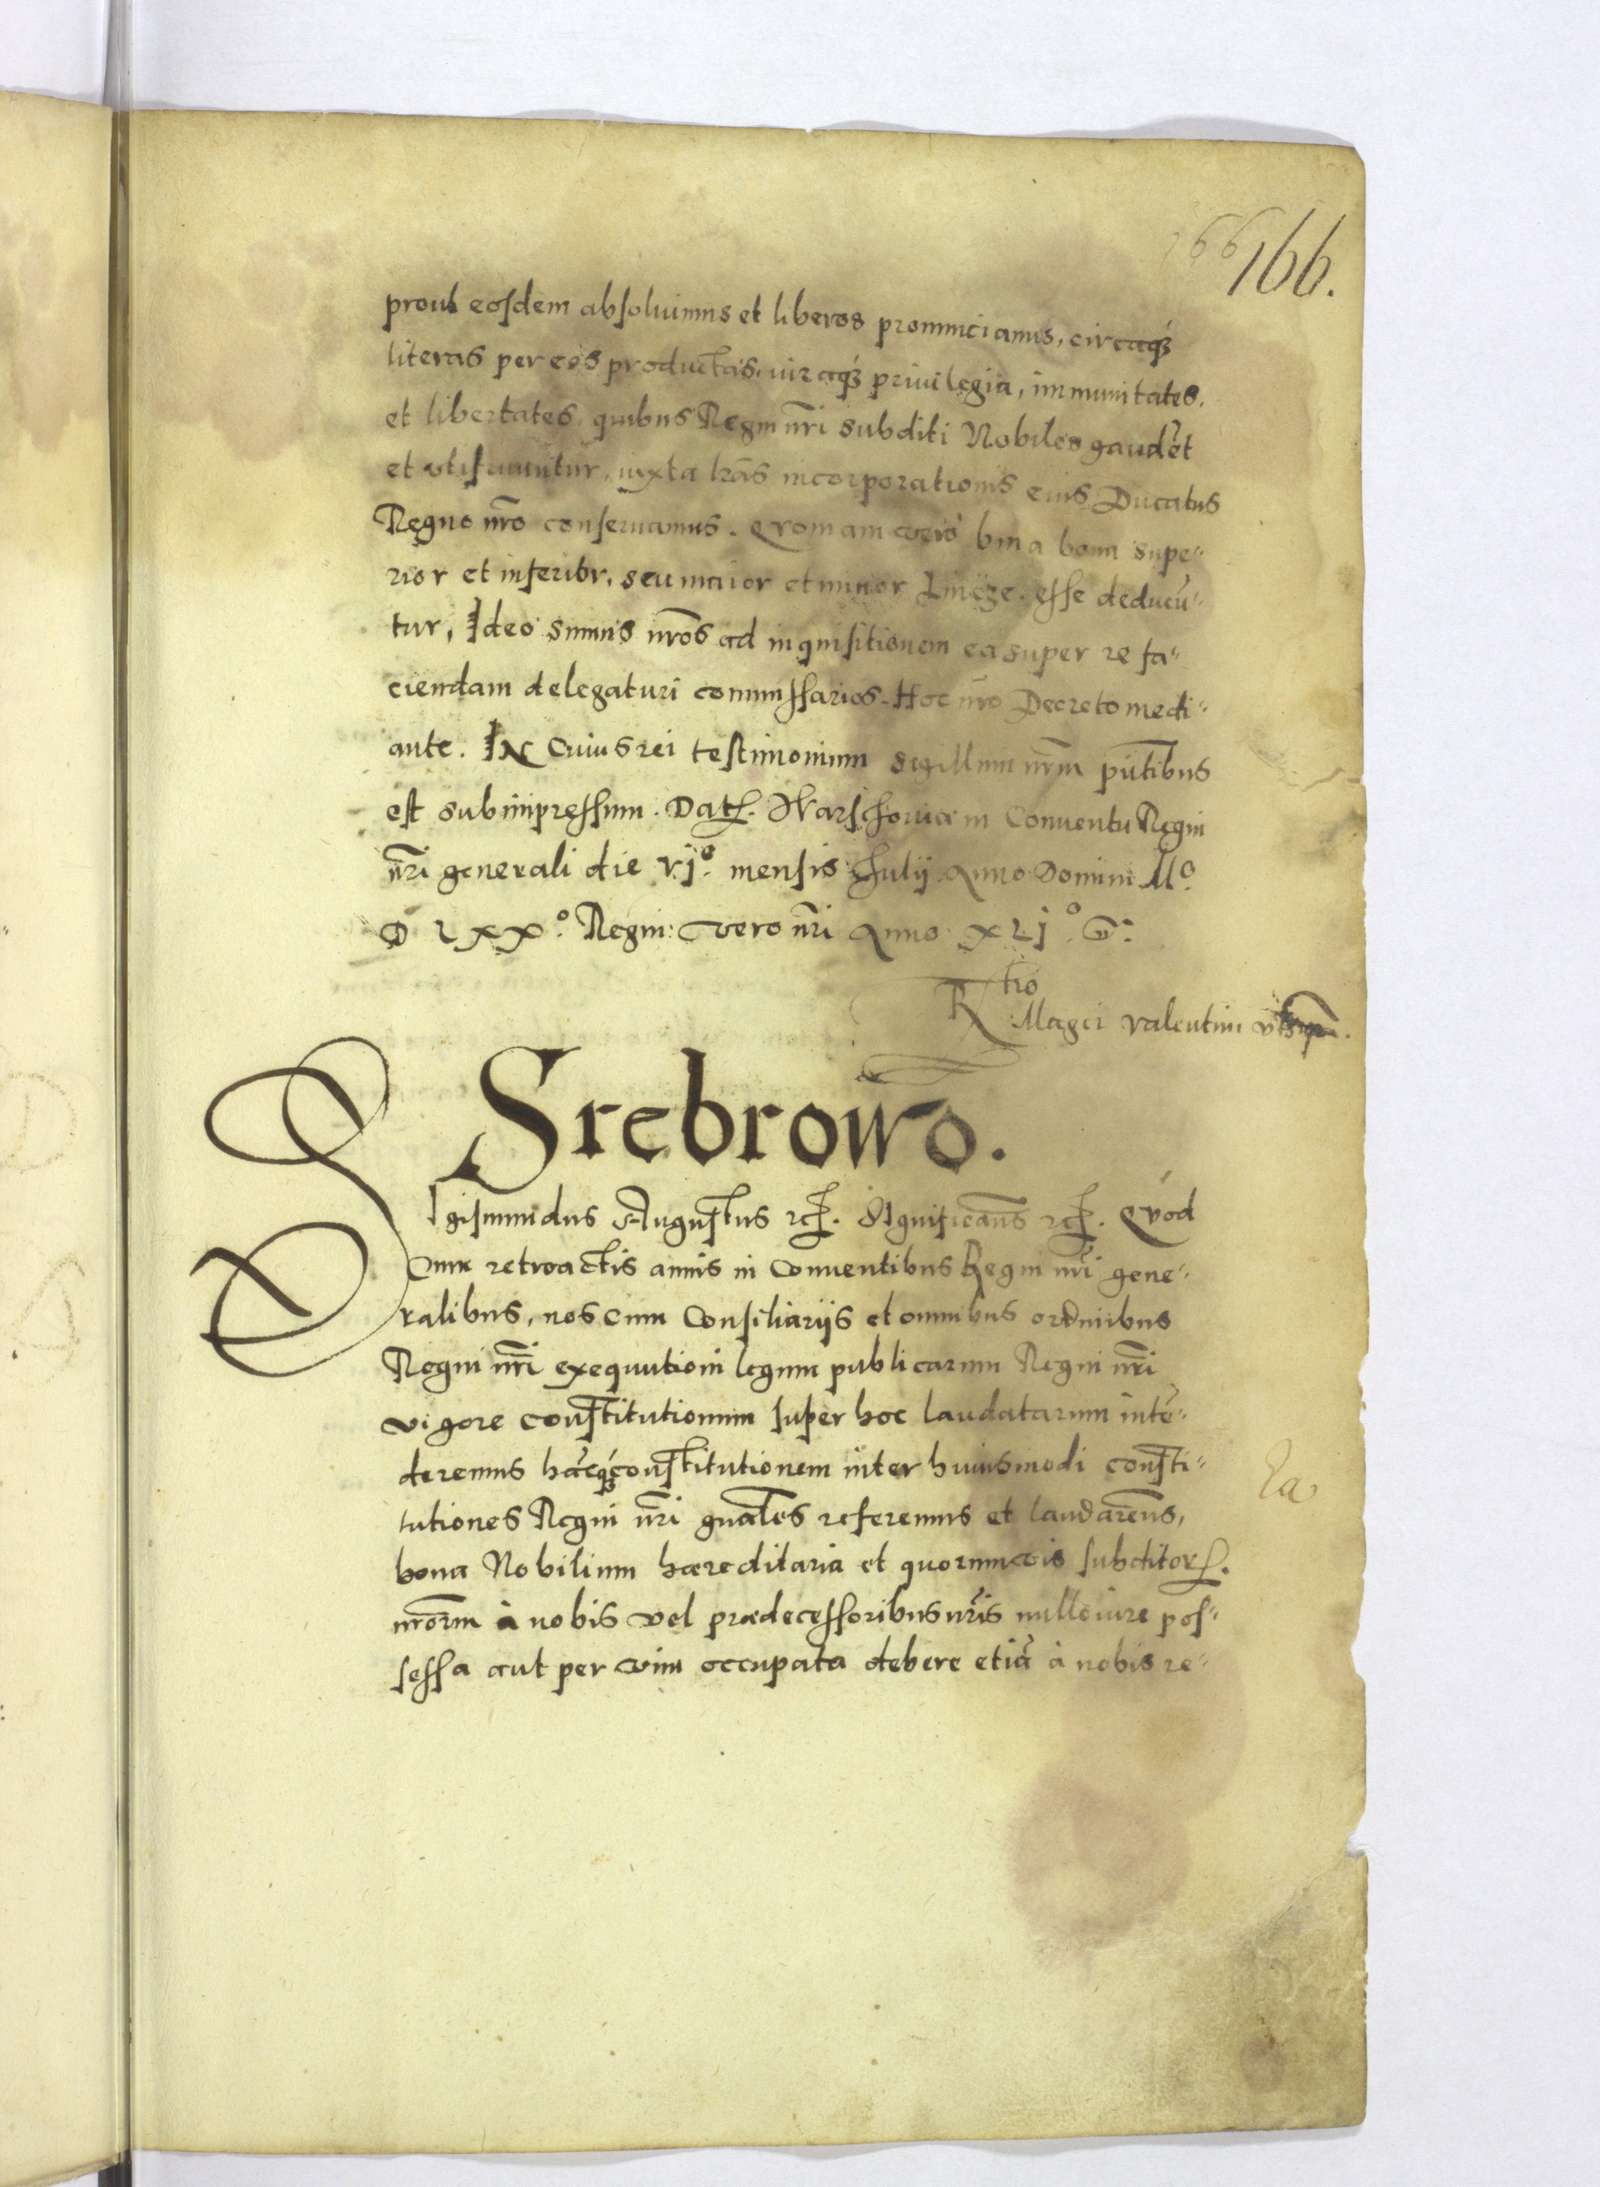 166
166.
prout eosdem absoluimus et liberos pronunciamus, circaq́3
literas per eos productas, circaq́3 priuilegia, immunitates,
et libertates, quibus Regni nr̄i subditi Nobiles gaudēt
et vtifruuntur, iuxta lr̄as incorporationis eius Ducatus
Regno nr̄o conseruamus. Qvoniam verò bina bona supe-
rior et inferior, seu maior et minor esse deducū-
tur, Ideo sumus nr̄os ad inquisitionem ea super re fa-
ciendam delegaturi commissarios. Hoc nr̄o Decreto medi-
ante. IN Cuius rei testimonium sigillum nr̄m pn̄tibus
est subimpressum. Dat. Warschouiæ in Conuentu Regni
nr̄i generali die vj.º mensis Julij Anno Domini Mº.
D LXXº. Regni: vero nr̄i Anno XLjº.
Rtio
Magci Valentini vt sup̄.
Srebrowo.
Sigismundus Augustus etc. Significam̄s etc. Qvód
Cum retroactis annis in Conuentibus Regni nr̄i gene-
ralibus, nos cum Consiliarijs et omnibus ordinibus
Regni nr̄i exequutioni legum publicarum Regni nr̄i
vigore constitutionum super hoc laudatarum intē-
deremus hācq́3 constitutionem inter huiusmodi consti-
tutiones Regni nr̄i gnāles referemus et laudarem̄s,
bona Nobilium hæreditaria et quorumuis subditor.
nr̄orum à nobis vel prædecessoribus nr̄is nullo iure pos-
sessa aut per vim occupata debere etiā à nobis re-